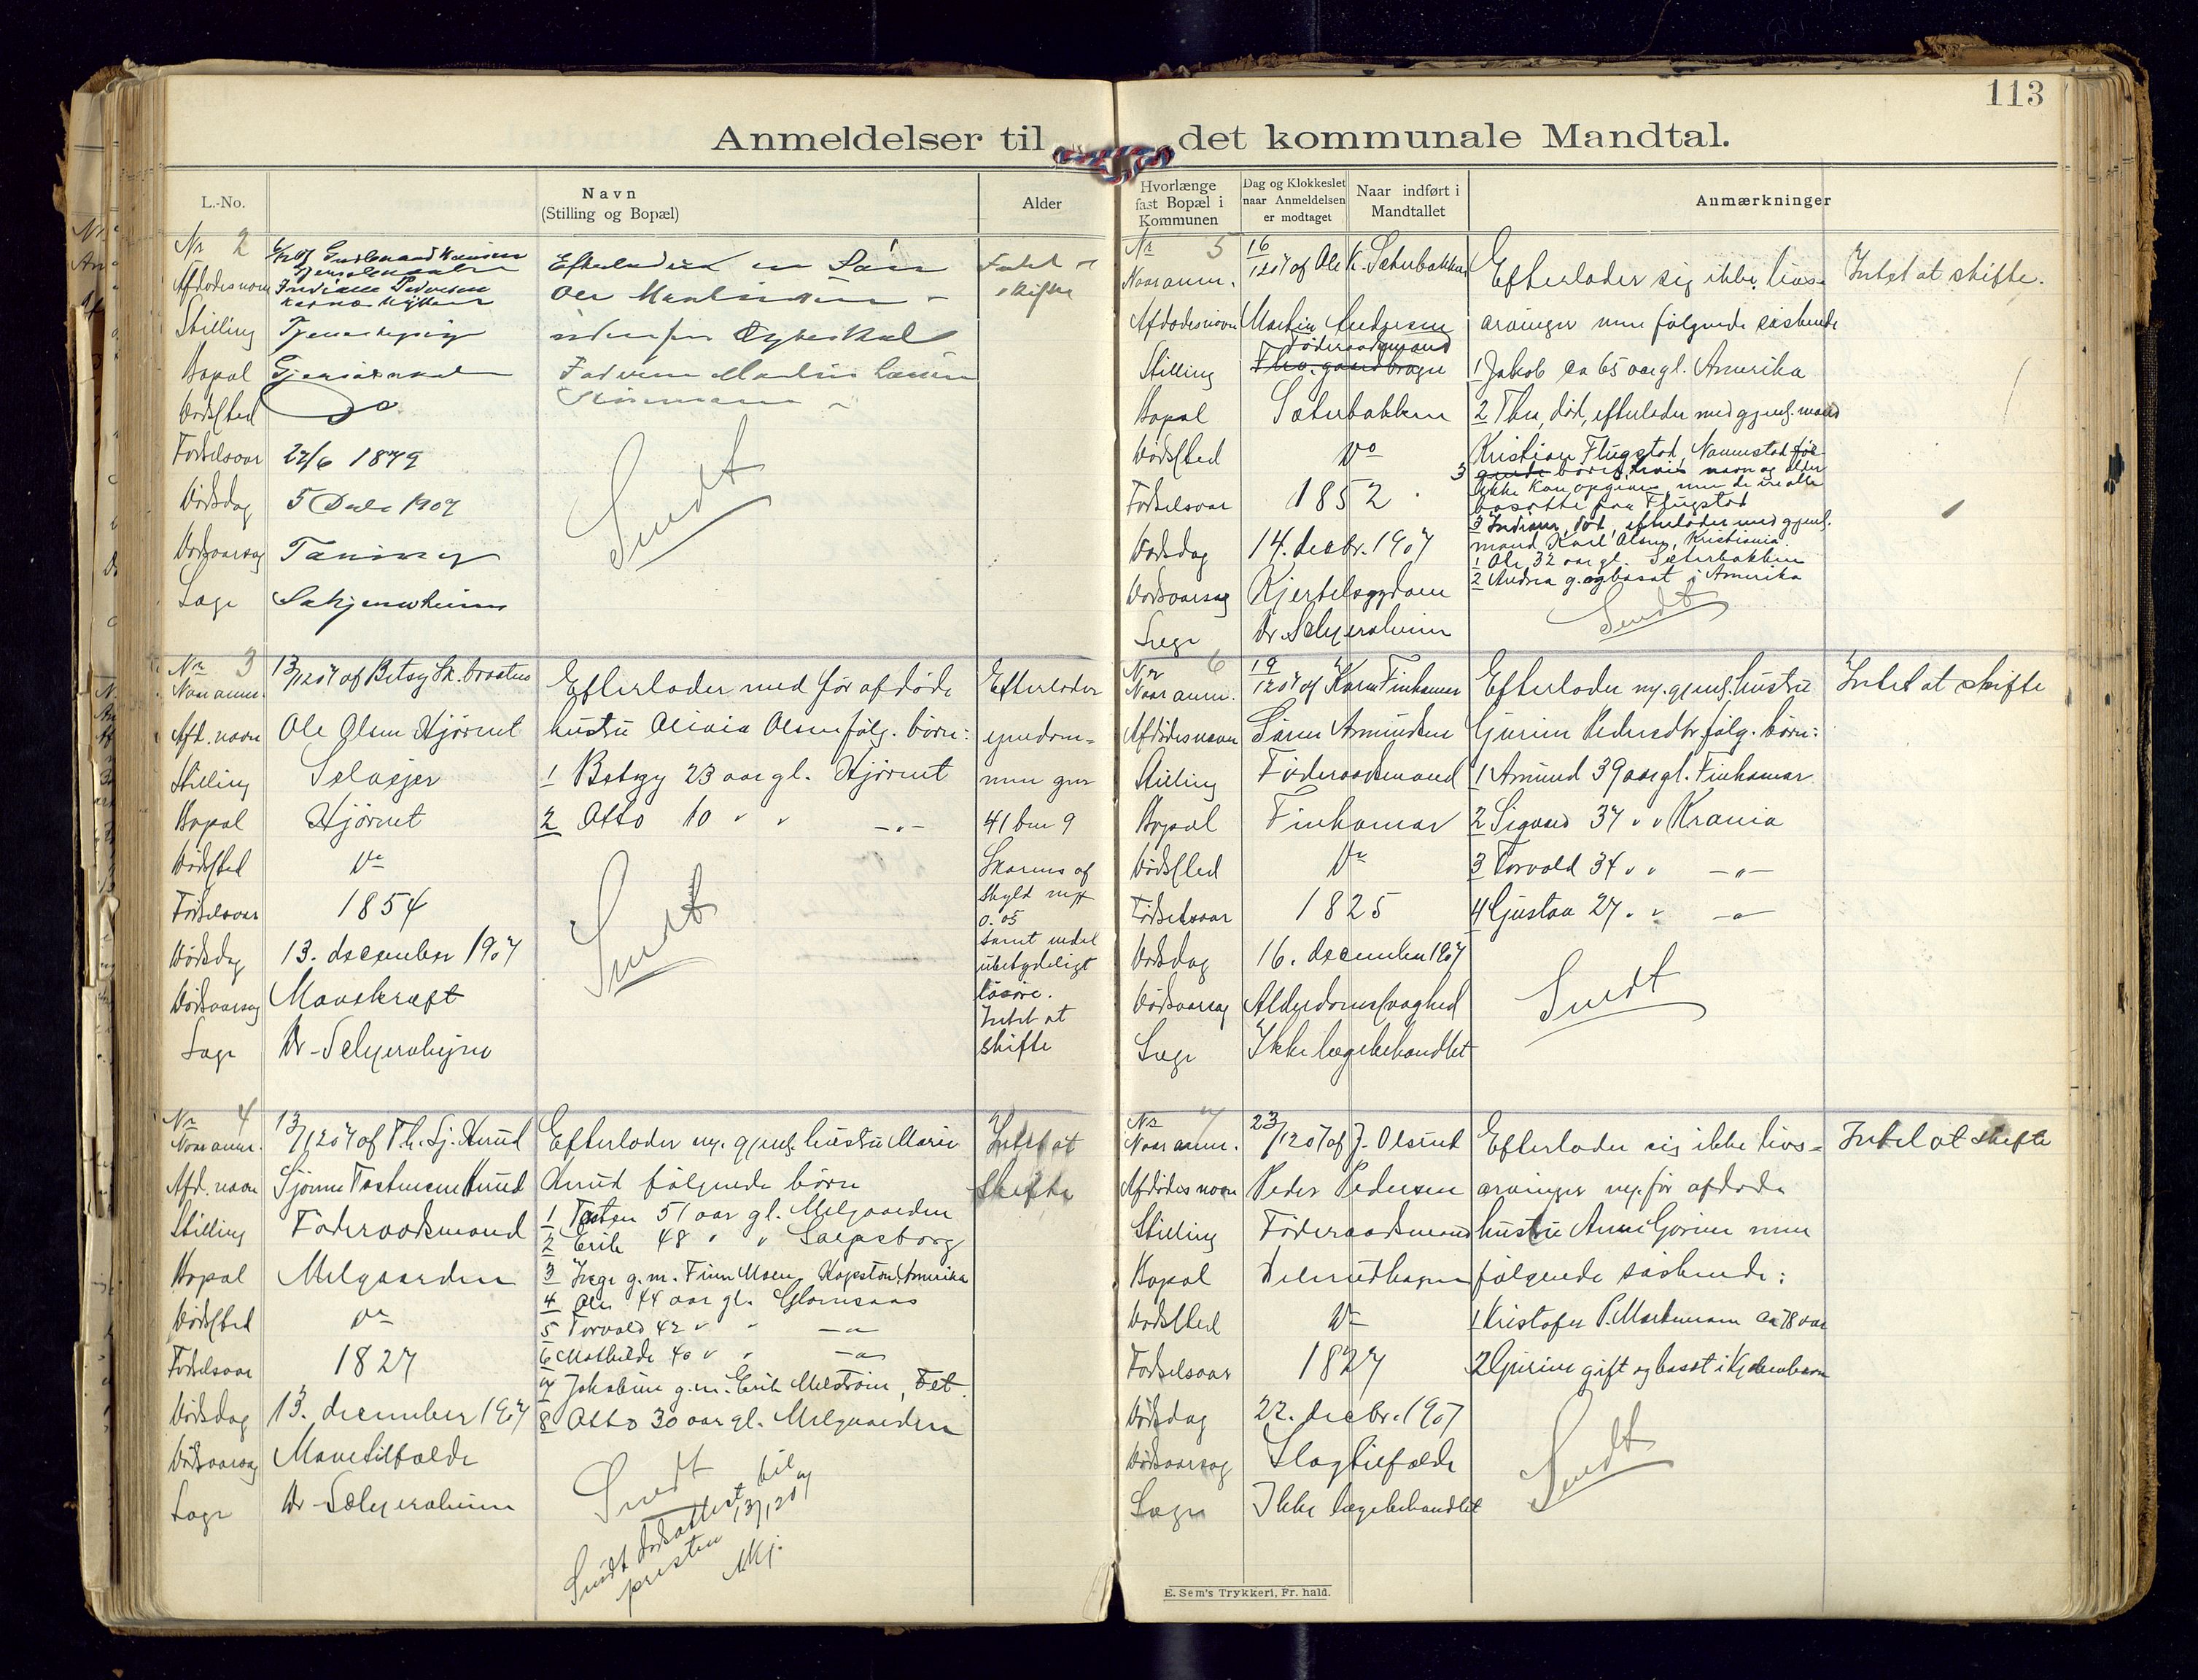 113
Anmeldelser til det kommunale Mandtal.
L.-No.
Navn
(Stilling og Bopæl)
Alder
Hvorlænge
fast Bopæl i
Kommunen
Dag og Klokkeslet
naar Anmeldelsen
er modtaget
Naar indført i
Mandtallet
Anmærkninger
Nr 2
Afdødes navn
Stilling
Bopæl
Dødssted do
Fødselsaar 27/6 1879
Dødsdag 5 1907
Dødsaarsag
Læge
Efterlader en Søn
Ole
Intet at
skifte
Sendt
Nr 3
Naar anm. 13/12 07 af Betsy
Afd. navn Ole Olsen Hjørnet
Stilling Selveejer
Bopæl Hjørnet
Dødssted Do
Fødselsaar 1854
Dødsdag 13. december 1907
Dødsaarsag Mavekræft
Læge Dr
Efterlader med før afdøde
hustru Olivia Olsen følg. børn:
1 Betsy 23 aar gl. Hjørnet
2 Otto 10 " " -"-
Sendt
Efterlader
ejendom-
men gnr
41 bnr 9
af
skyld
0.05
samt endel
ubetydeligt
løsøre.
Intet at
skifte
Nr 4
Naar anm. 13/12 07 af Th. Sj. Knud
Afd. navn
Stilling Føderaadsmand
Bopæl Melgaarden
Dødssted Do
Fødselsaar 1827
Dødsdag 13. december 1907
Dødsaarsag Mavetilfælde
Læge Dr
Efterlader m. gjenl. hustru Marie
følgende børn
1 Tosten 51 aar gl. Melgaarden
2 Erik 48 " " Sarpsborg
3 Inge g. m. Finn Moen, Amerika
4 Ole 44 aar gl. Glomsaas
5 Torvald 42 " " -"-
6 Mathilde 40 " " -"-
7 Jakobine g. m. Erik Melstrøm, Fet.
8 Otto 30 aar gl. Melgaarden
Intet at
skifte
Sendt
Sendt dødsattest til
presten 13/12 07
Nr 5
Naar anm. 16/12 07 af Ole K. Sæterbakken
Afdødes navn Martin Andersen
Føderaadsmand
Stilling
Bopæl Sæterbakken
Dødssted Do
Fødselsaar 1852
Dødsdag 14. decbr. 1907
Dødsaarsag Kjertelsygdom
Læge Dr
Efterlader sig ikke livs-
arvinger men følgende søskende
1 Jakob ca 65 aar gl. Amerika
2 Thea, død, efterlader med gjenl. mand
Kristian Flugstad, Nannestad føl-
gende børn hvis navn og alder
ikke kan opgives men de ere alle
bosatte paa Flugstad
3 Indiane, død, efterlader med gjenl.
mand Karl Olsen, Kristiania
1 Ole 32 aar gl. Sæterbakken
2 Andrea g. og bosat i Amerika
Sendt
Intet at skifte.
Nr 6
Naar anm. 19/12 07 af Karen Finhamar
Afdødes navn Søren Amundsen
Stilling Føderaadsmand
Bopæl Finhamar
Dødssted Do
Fødselsaar 1825
Dødsdag 16. december 1907
Dødsaarsag Alderdomssvaghed
Læge Ikke lægebehandlet
Efterlader m. gjenl. hustru
Gurine Pedersdtr. følg. børn:
1 Amund 39 aar gl. Finhamar
2 Sigvard 37 " " Krania
3 Torvald 34 " " -"-
4 Gustav 27 " " -"-
Sendt
Intet at skifte
Nr 7
Naar anm. 23/12 07 af J. Olsrud
Afdødes navn Peder Pedersen
Stilling Føderaadsmand
Bopæl
Dødssted Do
Fødselsaar 1827
Dødsdag 22. decbr. 1907
Dødsaarsag Slagtilfælde
Læge Ikke lægebehandlet
Efterlader sig ikke livs-
arvinger m. før afdøde
hustru Anne Gorine men
følgende søskende:
1 Kristofer P. ca 78 aar
2 Gurine gift og bosat i Kjøbenhavn
Sendt
Intet at skifte
E. Sem's Trykkeri, Fr. hald.